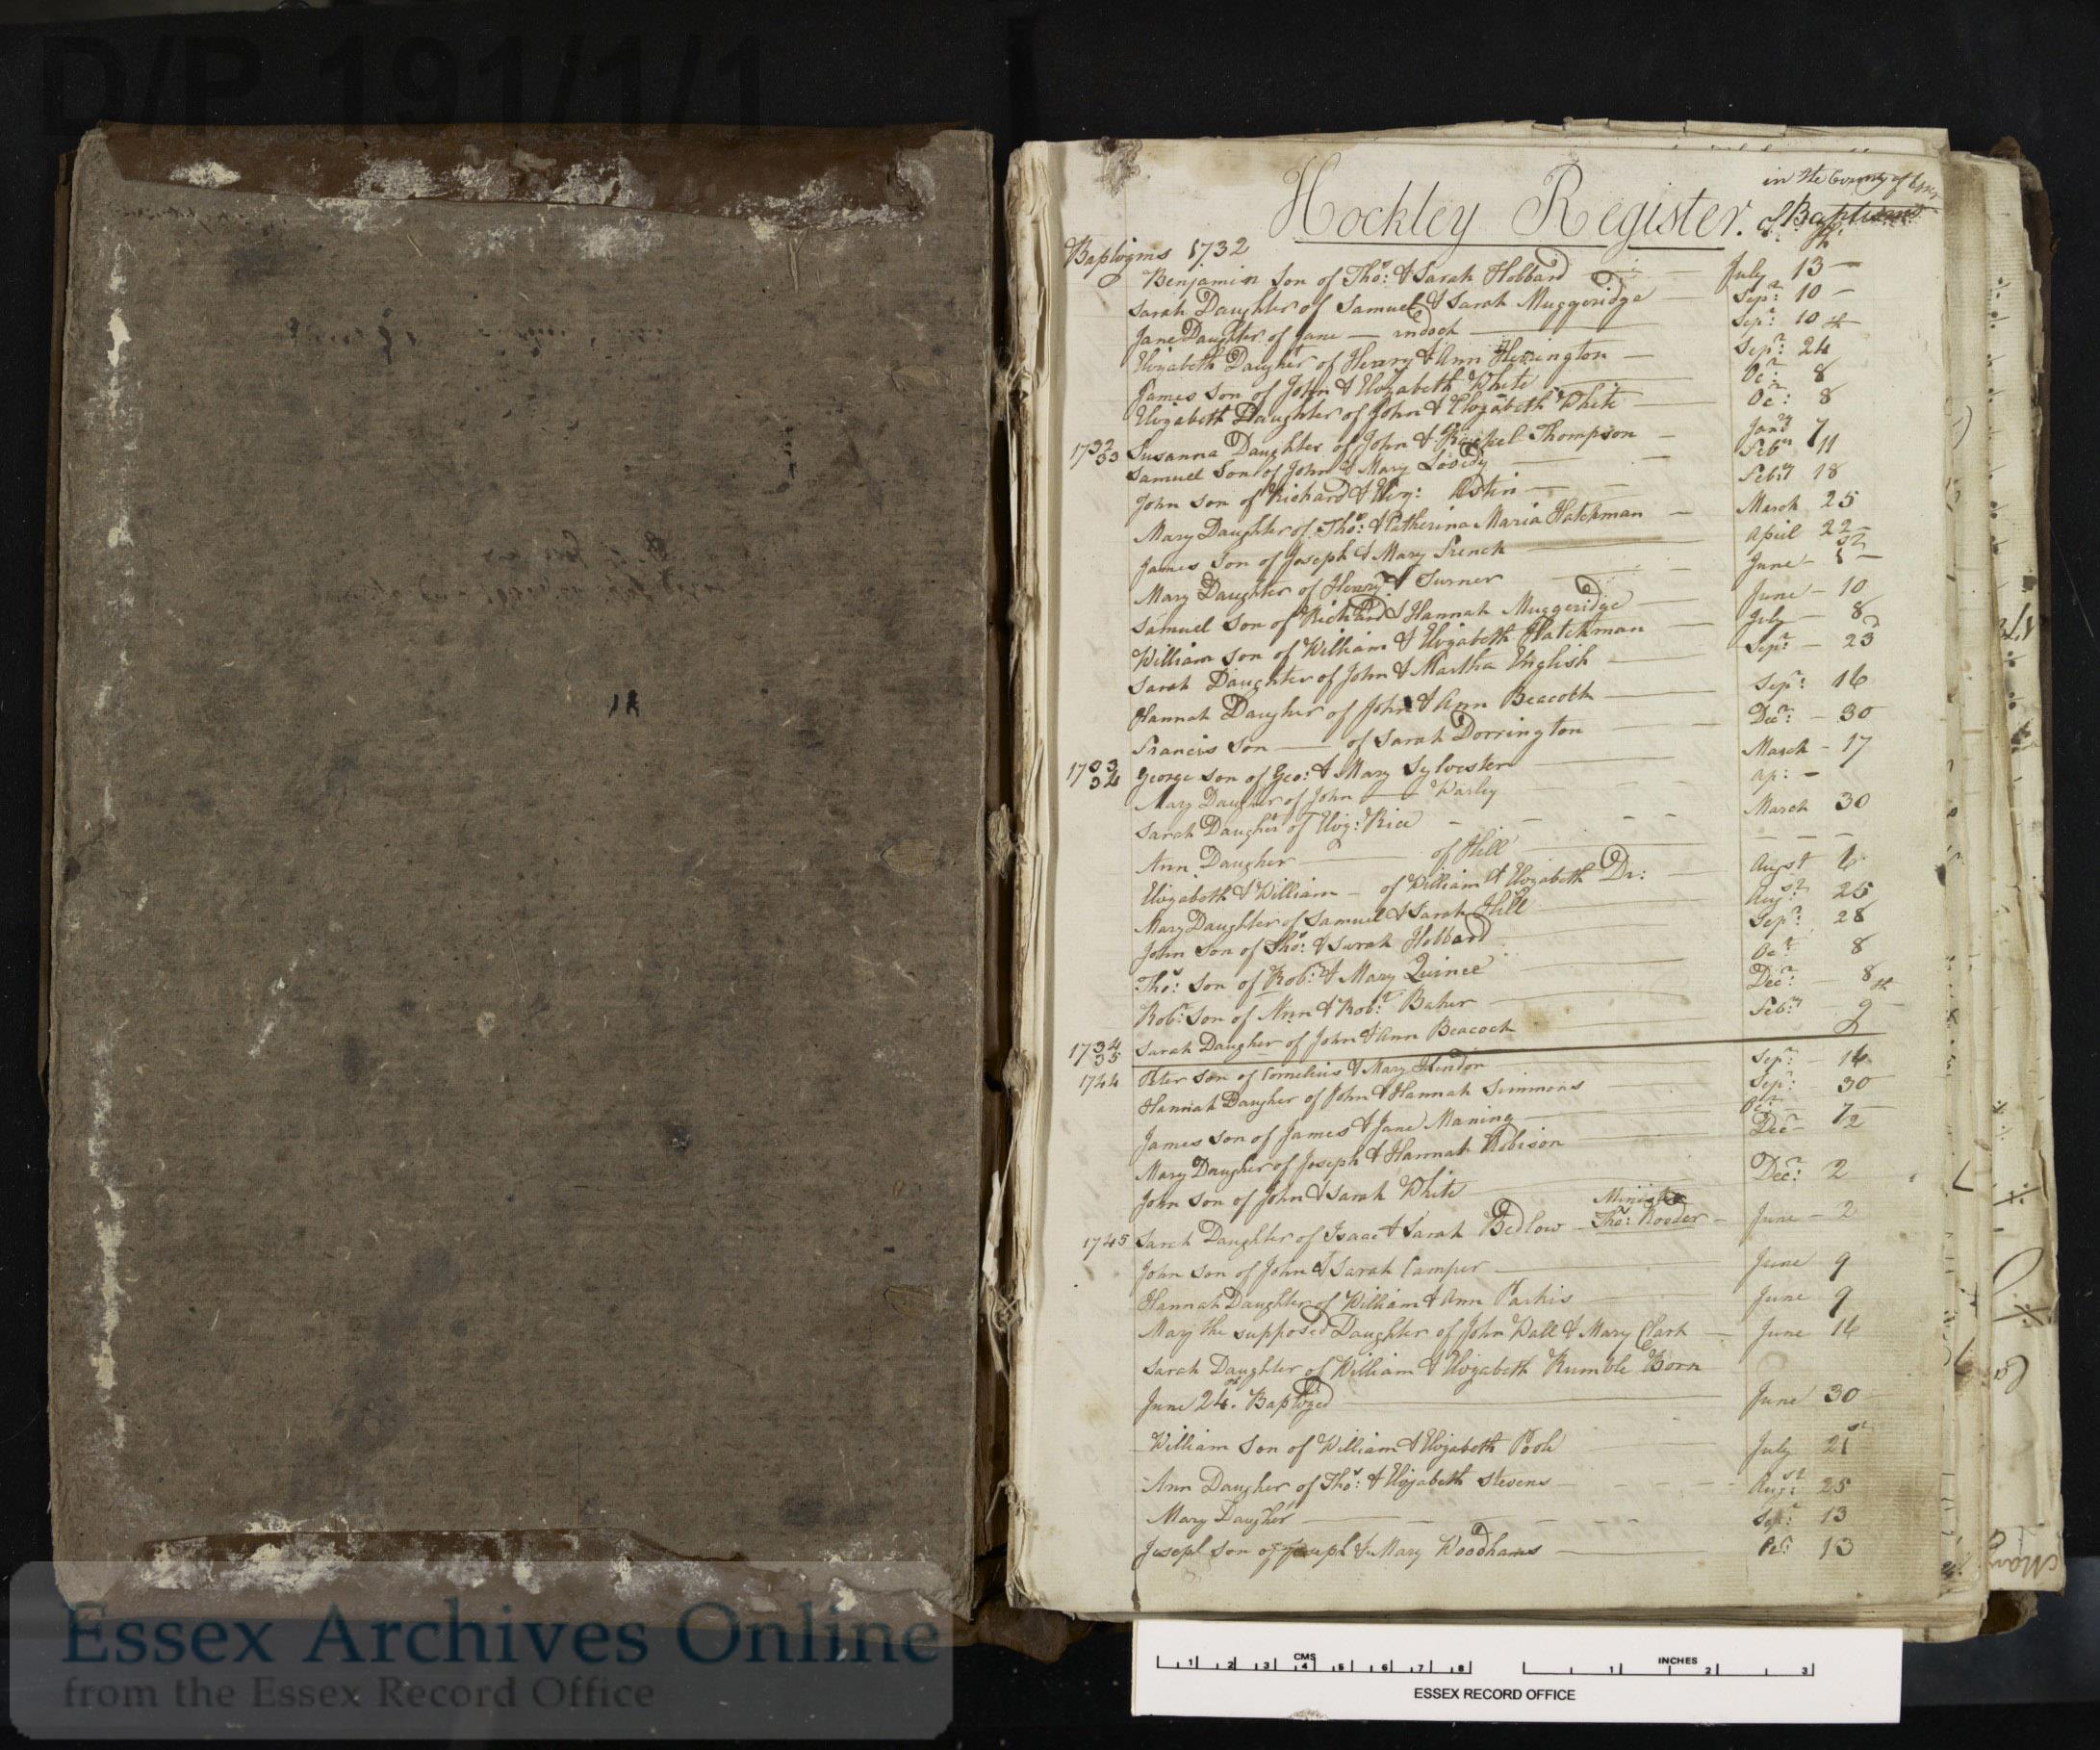 D/P 191/1/1
Hockley Register. in the County of Essex
of Baptisms
Baptizms 1732
Benjamin Son of Tho.s & Sarah Hobbard July 13th
Sarah Daughter of Samuel & Sarah Muggeridge Sepr: 10
Jane Daughter of Jane — Sepr: 10
Elizabeth Daughtr of Henry & Ann Sepr: 24th
James Son of John & Elizabeth White Ocr: 8
Elizabeth Daughter of John & Elizabeth White Ocr: 8
1732/33 Susanna Daughter of John & Thompson Jany 7
Samuel Son of John & Mary Feby 11
John Son of Richard & Eliz: Astin Feby 18
Mary Daughter of Tho.s & Catherina Maria Hatchman March 25
James Son of Joseph & Mary French April 22
Mary Daughter of Henry & Turner June
Samuel Son of Richard & Hannah Muggeridge June 10
William Son of William & Elizabeth Hatchman July 8
Sarah Daughter of John & Martha English Sepr: 23
Hannah Daugher of John & Ann Beacoth Sepr: 16
Francis Son — of Sarah Dorrington Decr: 30
1733/34 George Son of Geo: & Mary Sylvester March 17
Mary Daugher of John — Warley Ap: —
Sarah Daughr of Eliz: Rice March 30
Ann Daugher — of Hill — — —
Elizabeth & William — of William & Elizabeth Dr: Augst 6
Mary Daughter of Samuel & Sarah Hill Augst 25
John Son of Tho.s & Sarah Hobbard Sepr: 28
Tho.s Son of Robt & Mary Quince Ocr: 8
Robt Son of Ann & Robt Baker Decr: 8
1734/35 Sarah Daugher of John & Ann Beacoch Feby: 9th
1744 Peter Son of Cornelius & Mary Hendon Sepr: 16
Hannah Daugher of John & Hannah Simmons Sepr: 30
James Son of James & Jane Maning Ocr: 7
Mary Daugher of Joseph & Hannah Robison Decr 2
John Son of John & Sarah White Decr: 2
Minister
1745 Sarah Daughter of Isaac & Sarah Bedlow Tho.s June 2
John Son of John & Sarah Camper June 9
Hannah Daughter of William & Ann Parkis June 9
Mary the supposed Daughter of John Wall & Mary Clark June 16
Sarah Daughter of William & Elizabeth Rumble Born
June 24th Baptized June 30
William Son of William & Elizabeth Poole July 21st
Ann Daugher of Tho.s & Elizabeth Stevens Augst 25
Mary Daugher Sepr: 13
Joseph son of Joseph & Mary Woodhams Ocr 13
Essex Archives Online
from the Essex Record Office
CMS 1 2 3 4 5 6 7 8 INCHES 1 2 3
ESSEX RECORD OFFICE